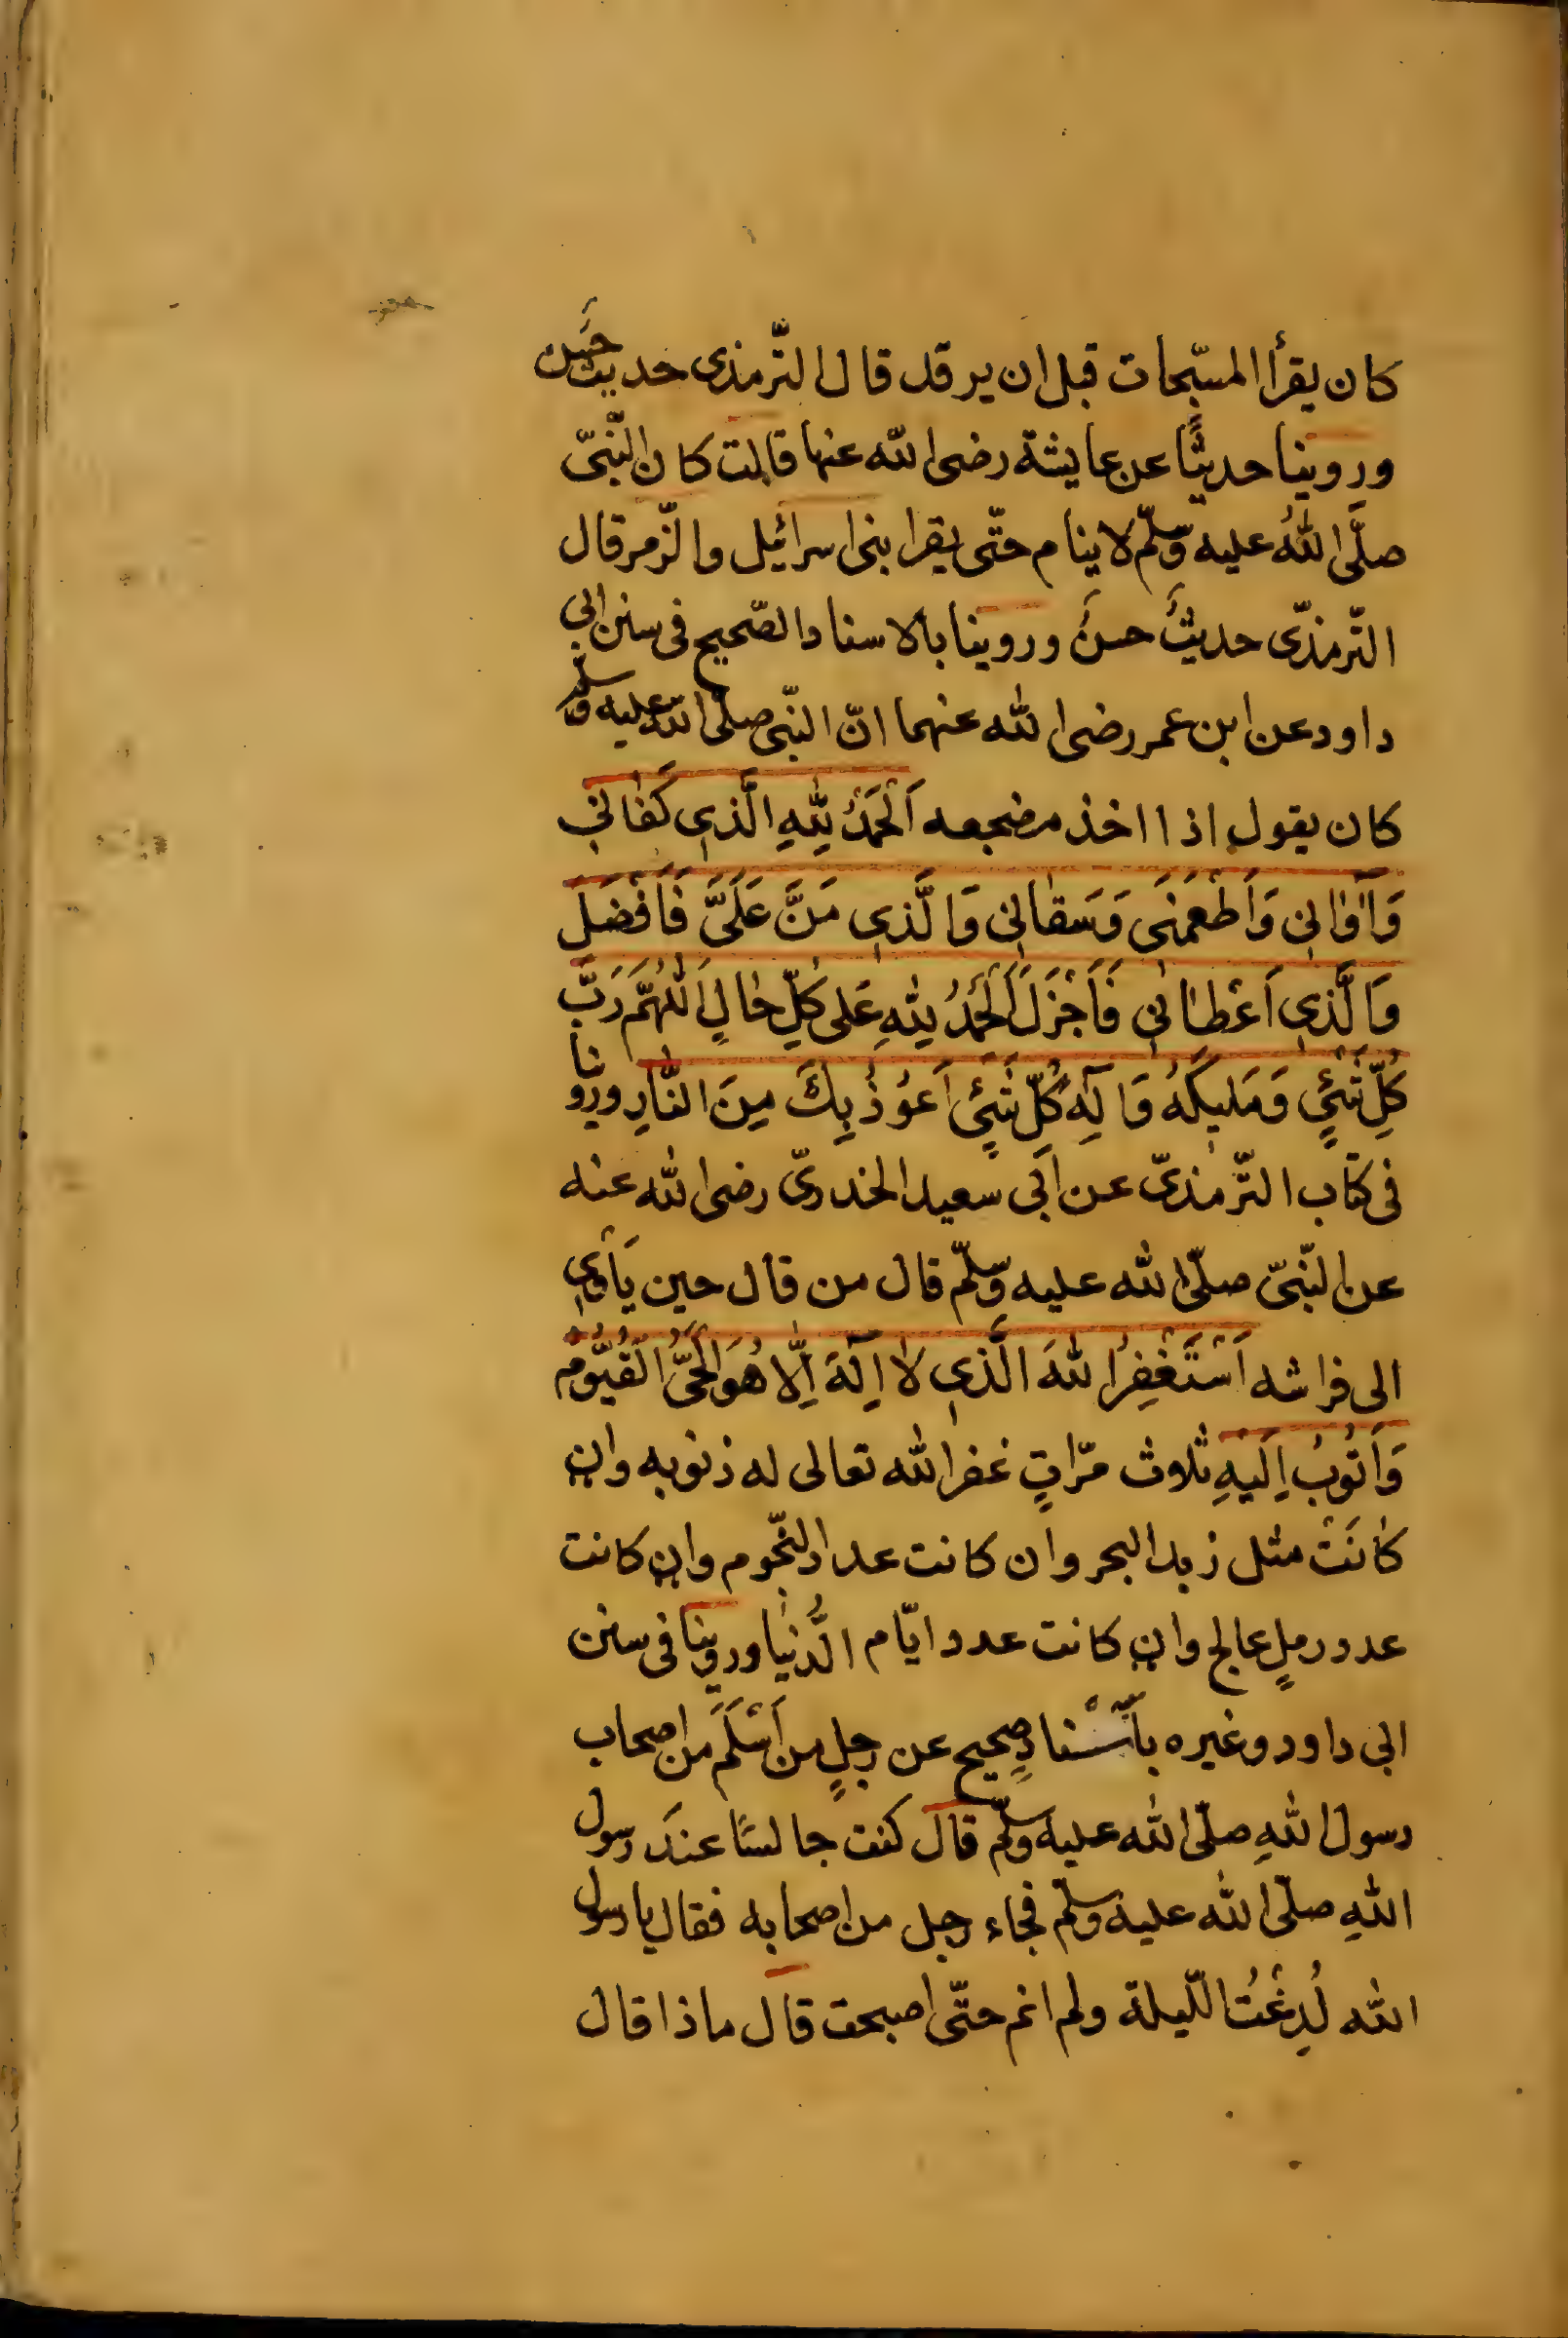 كان يقرأ المسبّحات قبل ان يرقد قال التّرمذى حديث حسن
وروينا حديثًا عن عايشة رضى الله عنها قالت كان النّبىّ
صلّى اللهُ عليه وسلّم لا ينام حتّى يقرا بنى اسرائيل والزّمر قال
التّرمذىّ حديثٌ حسنٌ وروينا بالاسناد الصّحيح فى سنن ابى
داود عن ابن عمر رضى الله عنهما انّ النّبى صلّى الله عليه وسلّم
كان يقول اذا اخذ مضجعه اَلْحَمْدُ لِلّٰهِ الَّذِى كَفَانِى
وَآوَانِى وَاَطْعَمَنِى وَسَقَانِى وَالَّذِى مَنَّ عَلَىَّ فَاَفْضَلَ
وَالَّذِى اَعْطَانِى فَاَجْزَلَ اَلْحَمْدُ لِلّٰهِ عَلى كُلِّ حَالٍ اَللّٰهُمَّ رَبَّ
كُلِّ شَيْئٍ وَمَلِيكَهُ وَاِلٰهَ كُلِّ شَيْئٍ اَعُوْذُ بِكَ مِنَ النَّارِ وروينا
فى كتاب التّرمذىّ عن اَبى سعيد الخدرىّ رضى الله عنه
عن النّبىّ صلّى الله عليه وسلّم قال من قال حين يَأوِى
الى فراشه اَسْتَغْفِرُ اللهَ الَّذِى لَا اِلٰهَ اِلَّا هُوَ الْحَىُّ الْقَيُّوْمُ
وَاَتُوْبُ اِلَيْهِ ثلاث مرّاتٍ غفر الله تعالى له ذنوبه وان
كَانَتْ مثل زبد البحر وان كانت عدد النّجوم وان كانت
عدد رملٍ عالج وان كانت عدد ايّام الدُّنْيَا وروينا فى سنن
ابى داود وغيره بأسْنادٍ صحيح عن رجلٍ من اَسْلَمَ من اصحاب
رسول اللهِ صلّى الله عليه وسلّم قال كنت جالسًا عندَ رسول
اللهِ صلّى الله عليه وسلّم فجاء رجل من اصحابه فقال يا رسول
الله لُدِغْتُ اللّيلة ولم انم حتّى اصبحت قال ماذا قال